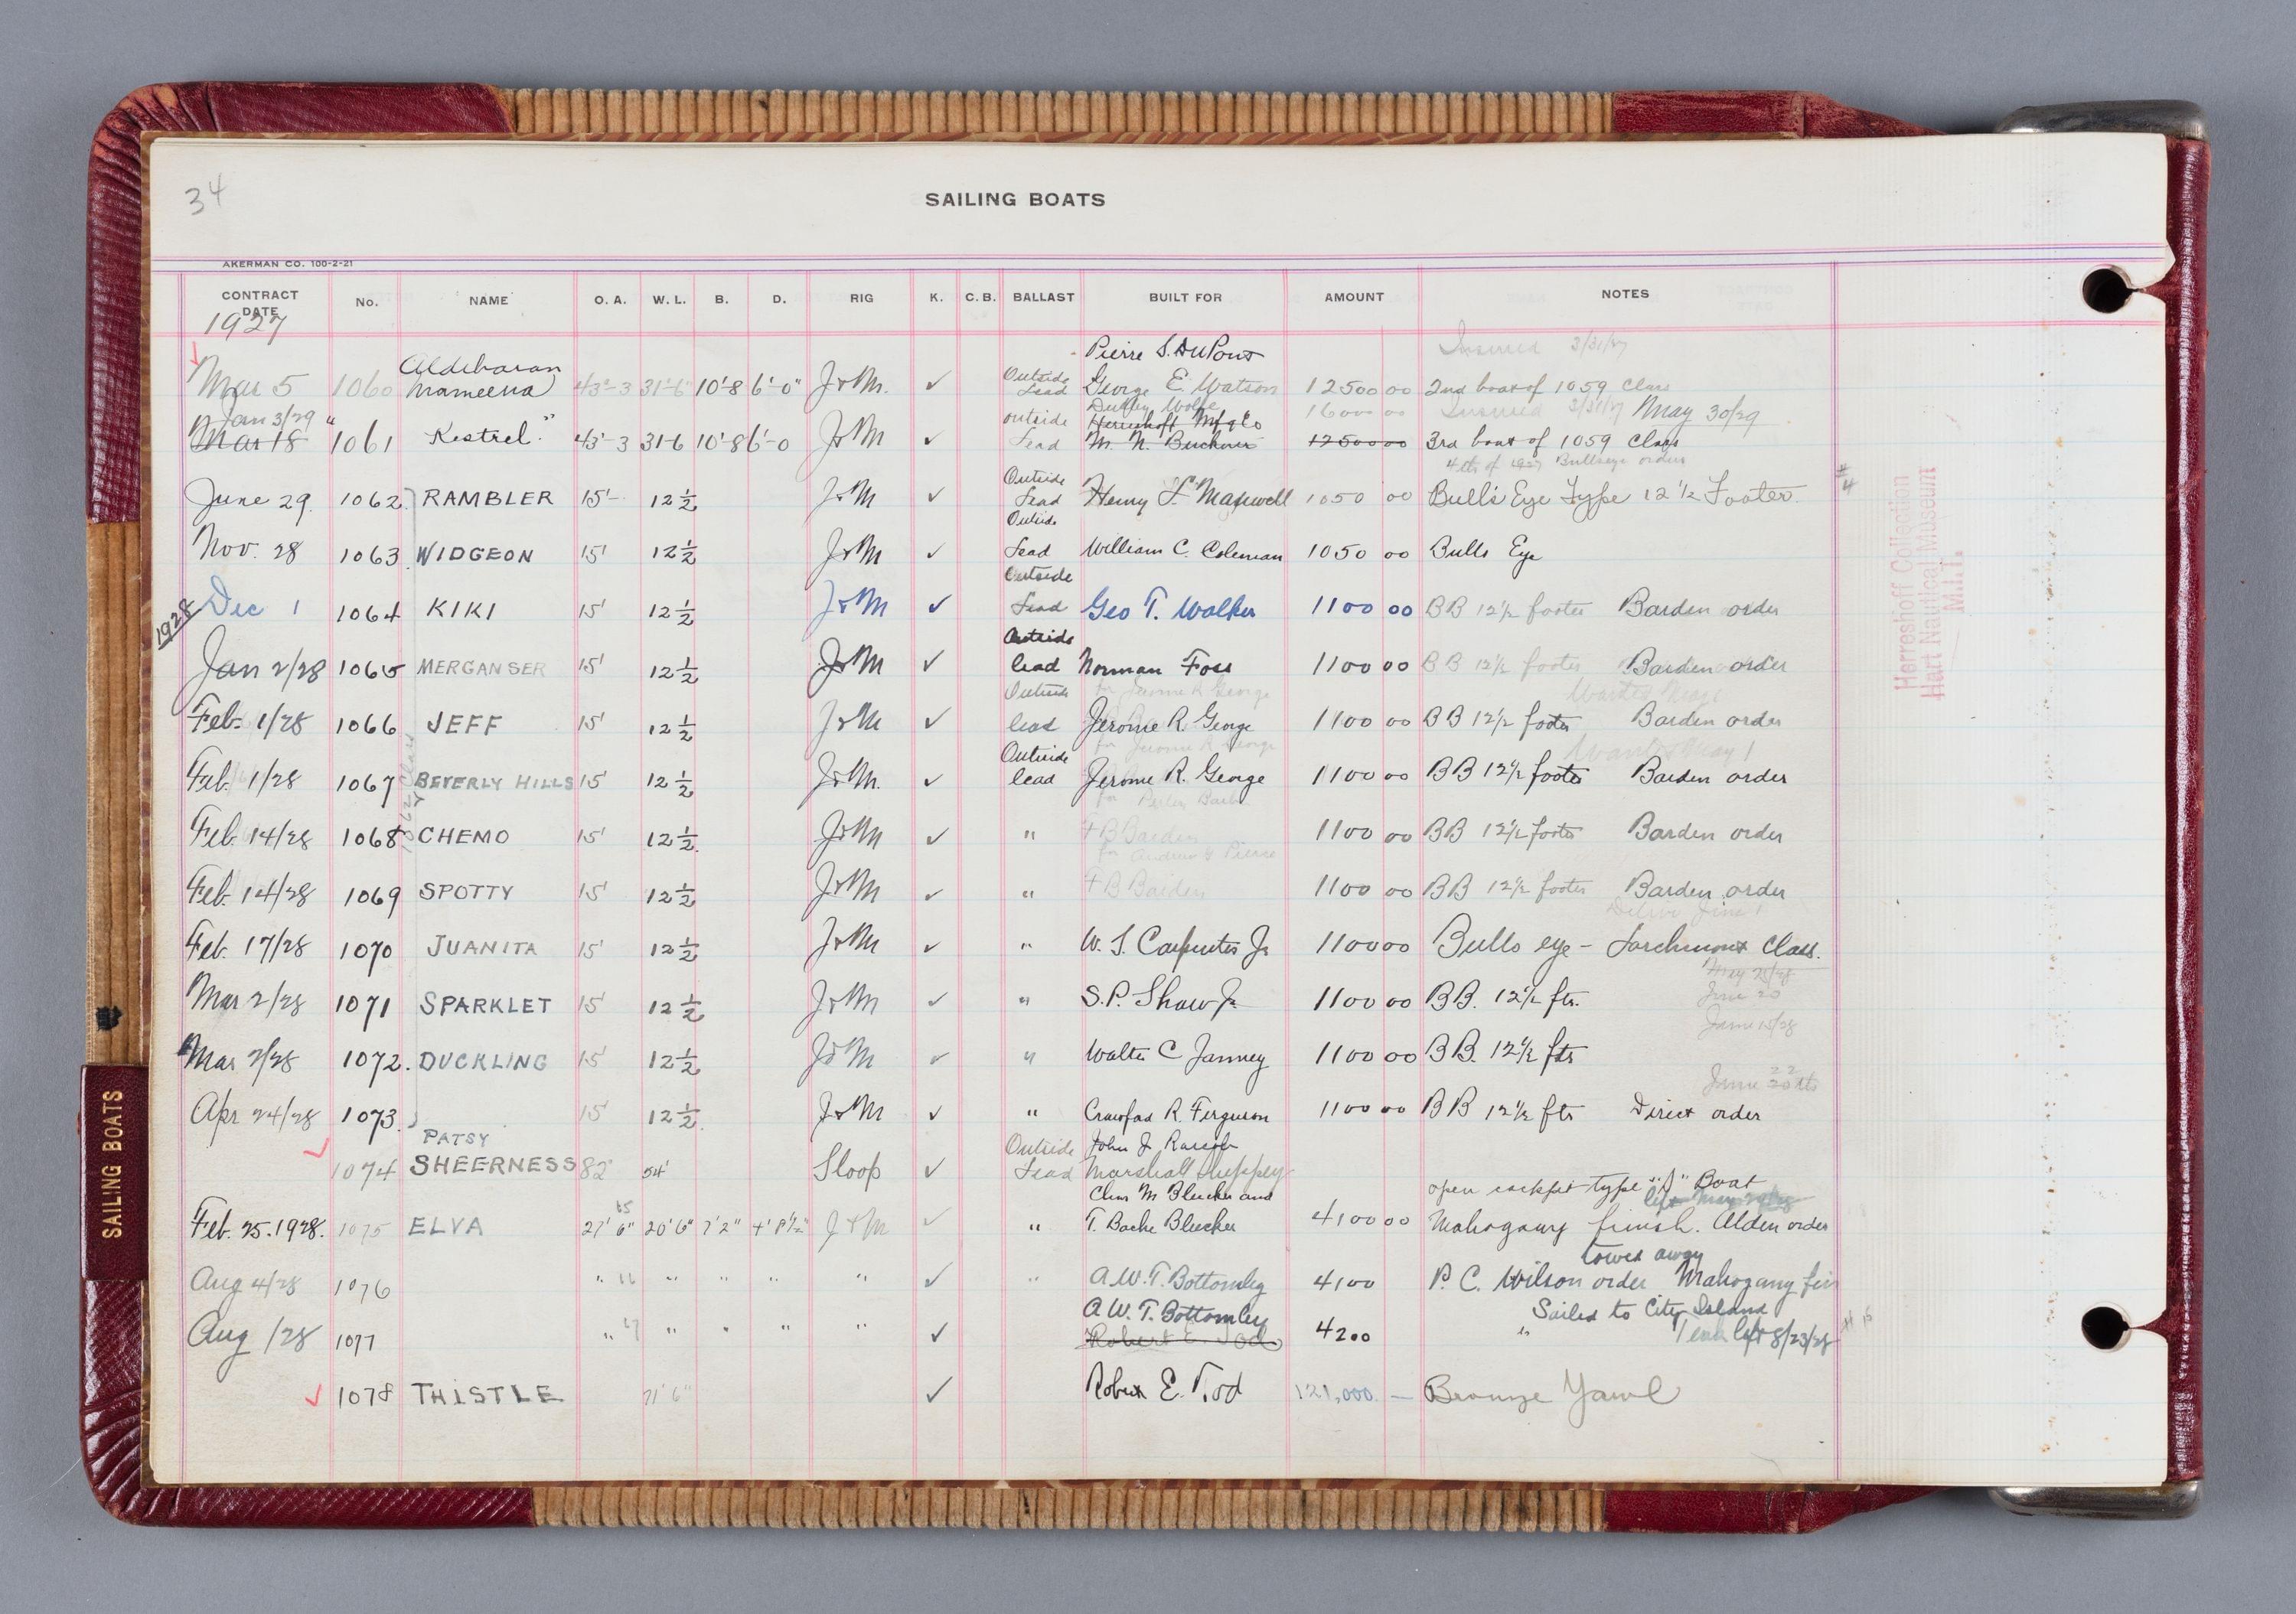 34
SAILING BOATS
AKERMAN CO. 100-2-21
CONTRACT DATE No. NAME O. A. W. L. B. D. RIG K. C. B. BALLAST BUILT FOR AMOUNT NOTES
1927
Pierre S. DuPont Insured 3/31/27
Aldebaran
Mar 5 1060 43'-3 31'-6" 10'8 6'-0" J & M. ✓ Outside Lead George E. Watson 12500 00 2nd boat of 1059 class
Jan 3/29 outside Dudley Wolfe 16000 00 Insured 3/31/27 May 30/29
Herreshoff Mfg Co
Mar 18 1061 "Kestrel" 43'-3 31-6 10'8 6'-0 J & M ✓ Lead 12500 00 3rd boat of 1059 class
4th of 1927 Bullseye orders
June 29. 1062 RAMBLER 15'- 12 1/2 J & M ✓ Outside Lead Henry L. Maxwell 1050 00 Bull's Eye Type 12 1/2 Footer. #4
Nov. 28 1063 WIDGEON 15' 12 1/2 J & M ✓ Outside Lead William C. Coleman 1050 00 Bulls Eye
Dec 1 1064 KIKI 15' 12 1/2 J & M ✓ Outside Lead Geo T. Walker 1100 00 BB 12 1/2 footer Barden order
1928
Jan 2/28 1065 MERGANSER 15' 12 1/2 J & M ✓ Outside lead Norman Foss 1100 00 BB 12 1/2 footer Barden order
for Jerome R George
Feb. 1/28 1066 JEFF 15' 12 1/2 J & M ✓ Outside lead Jerome R. George 1100 00 BB 12 1/2 footer Barden order
for Jerome R George Wanted May 1
Feb. 1/28 1067 BEVERLY HILLS 15' 12 1/2 J & M. ✓ Outside lead Jerome R. George 1100 00 BB 12 1/2 footer Barden order
1062 Class
Feb. 14/28 1068 CHEMO 15' 12 1/2 J & M ✓ " F B Barden 1100 00 BB 12 1/2 footer Barden order
for Andrew G Pierce
Feb. 14/28 1069 SPOTTY 15' 12 1/2 J & M ✓ " F B Barden 1100 00 BB 12 1/2 footer Barden order
Deliver June 1
Feb. 17/28 1070 JUANITA 15' 12 1/2 J & M ✓ " W. S. Carpenter Jr 1100 00 Bulls eye - Larchmont Class.
May 25/28
Mar 2/28 1071 SPARKLET 15' 12 1/2 J & M ✓ " S. P. Shaw Jr. 1100 00 BB. 12 1/2 ftr. June 20
June 15/28
Mar 2/28 1072. DUCKLING 15' 12 1/2 J & M ✓ " Walter C Janney 1100 00 BB. 12 1/2 ftr
June 22
Apr 24/28 1073. 15' 12 1/2 J & M ✓ " Crawford R. Ferguson 1100 00 BB 12 1/2 ftr Direct order
PATSY Outside John J. Raskob
1074 SHEERNESS 82' 54' Sloop ✓ Lead Marshall Sheppey
Chas M Bleecker and open cockpit type "S" Boat
Feb. 25. 1928. 1075 ELVA 27' 6" 20' 6" 7' 2" 4' 8 1/2" J & M ✓ " T. Bache Bleecker 4100 00 Mahogany finish. Alden order
Towed away
Aug 4/28 1076 " " " " " ✓ " A. W. T. Bottomley 4100 P. C. Wilson order Mahogany fin
A. W. T. Bottomley Sailed to City Island
Aug /28 1077 " " " " " ✓ Robert E. Tod 4200 " left 8/23/28
1078 THISTLE ✓ Robert E. Tod 121,000. — Bronze Yawl
Herreshoff Collection
Hart Nautical Museum
M.I.T.
SAILING BOATS